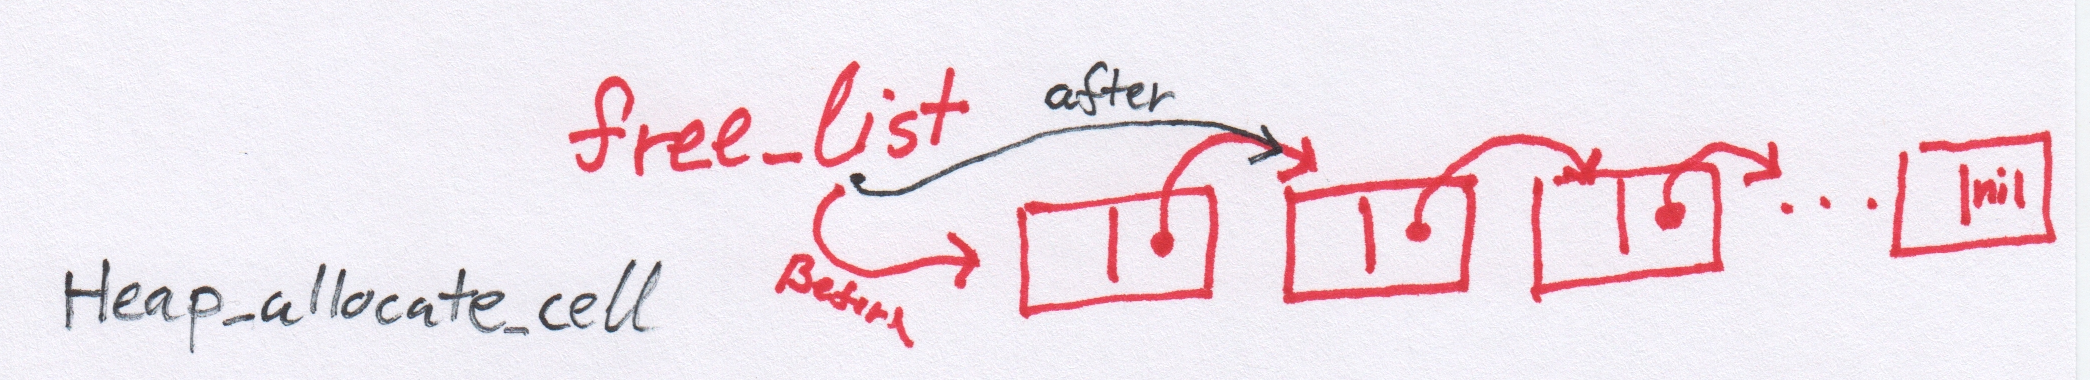 free_list
after
Before
Heap_allocate_cell
nil